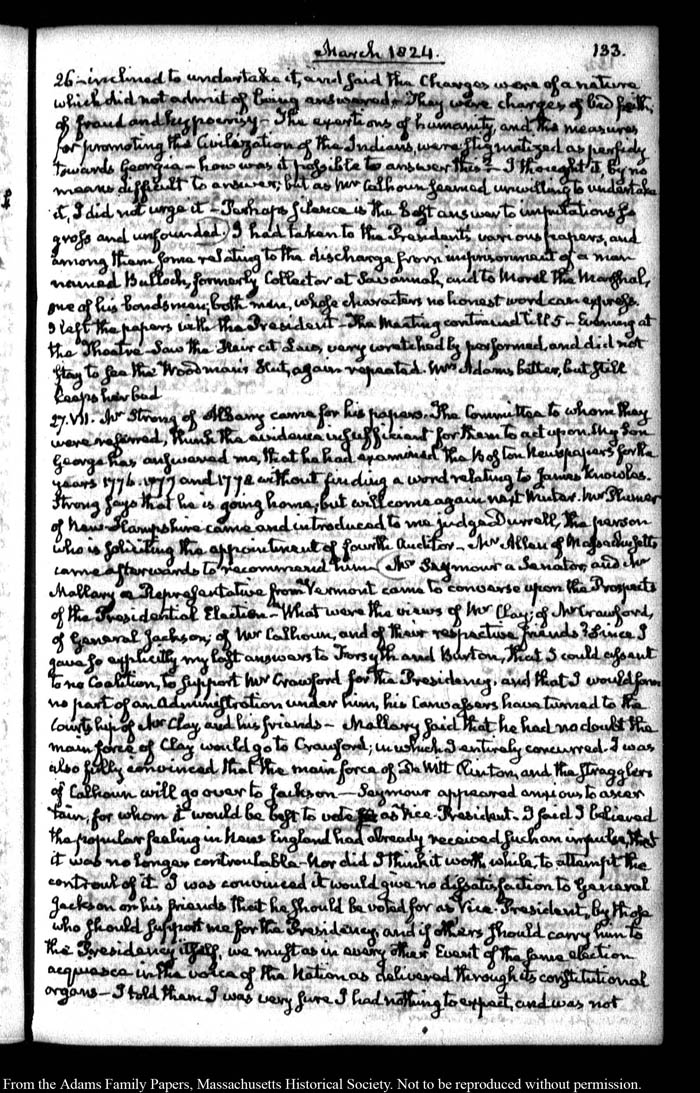 March 1824.
133.
26 - inclined to undertake it, and said the Charges were of a nature
which did not admit of being answered - They were charges of bad faith,
of fraud and hypocrisy - The exertions of humanity, and the measures
for promoting the Civilization of the Indians, were stigmatized as perfidy
towards Georgia - how was it possible to answer this? - I thought it by no
means difficult to answer; but as Mr Calhoun seemed unwilling to undertake
it, I did not urge it - Perhaps silence is the best answer to imputations so
gross and unfounded.) I had taken to the President's various papers, and
among them some relating to the discharge from imprisonment of a man
named Bulloch, formerly Collector at Savannah, and to Morel the Marshal,
one of his bondsmen; both men, whose characters no honest word can express.
I left the papers with the President - The Meeting continued till 5 - Evening at
the Theatre - Saw the Heir at Law, very wretchedly performed, and did not
stay to see the Woodman's Hut, again repeated. Mrs Adams better, but still
keeps her bed
27. VII. Mr Strong of Albany came for his papers. The Committee to whom they
were referred, think the evidence insufficient for them to act upon. My Son
George has answered me, that he had examined the Boston Newspapers for the
years 1776. 1777 and 1778 without finding a word relating to James Knowles.
Strong says that he is going home; but will come again next Winter. Mr Plumer
of New-Hampshire came and introduced to me judge Durrell, the person
who is soliciting the appointment of fourth Auditor - Mr Allen of Massachusetts
came afterwards to recommend him (Mr Seymour a Senator, and Mr
Mallary a Representative from Vermont came to converse upon the Prospects
of the Presidential Election - What were the views of Mr Clay; of Mr Crawford,
of General Jackson; of Mr Calhoun, and of their respective friends? Since I
gave so explicitly my last answers to Forsyth and Burton, that I could assent
to no Coalition, to support Mr Crawford for the Presidency, and that I would form
no part of an Administration under him, his Canvassers have turned to the
Courtship of Mr Clay and his friends - Mallary said that he had no doubt the
main force of Clay would go to Crawford; in which I entirely concurred. I was
also fully convinced that the main force of De Witt Clinton, and the stragglers
of Calhoun will go over to Jackson - Seymour appeared anxious to ascer
tain, for whom it would be best to vote as Vice-President. I said I believed
the popular feeling in New England had already received such an impulse, that
it was no longer controulable - Nor did I think it worth while, to attempt the
controul of it. I was convinced it would give no dissatisfaction to General
Jackson or his friends that he should be voted for as Vice-President, by those
who should support me for the Presidency, and if others should carry him to
the Presidency itself, we must as in every other Event of the same election
acquiesce in the voice of the Nation as delivered through its constitutional
organs - I told them I was very sure I had nothing to expect, and was not
From the Adams Family Papers, Massachusetts Historical Society. Not to be reproduced without permission.